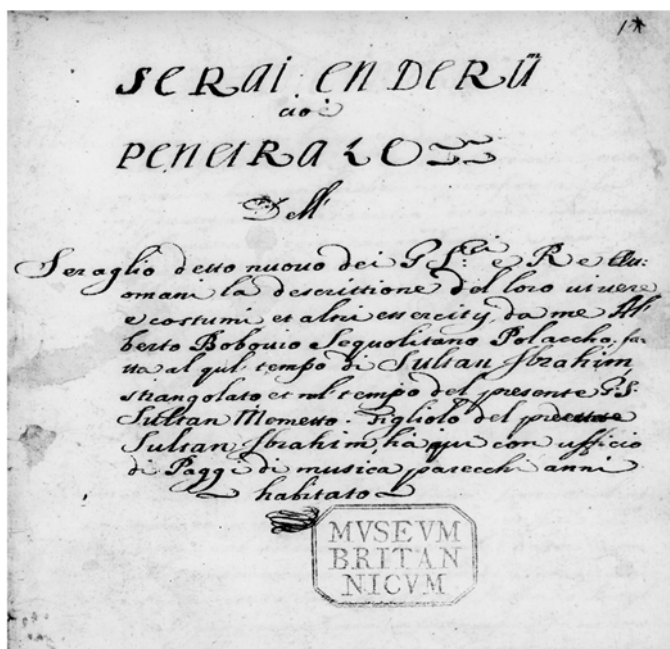 1
SERAI ENDERŪ
cioè
PENETRALO
Dell'
Seraglio detto nuovo dei G S.ri e Re Otto:
omani la descrittione del loro vivere
e costumi et altri essercity, da me Al:
berto Bobovio Sequolitano Polaccho, fat
tta al qul tempo di Sultan Ibrahim
strangolato et nel tempo del presente G.S.
Sultan Memetto. Figliolo del
Sultan Ibrahim, ha qui con ufficio
di Paggi di musica parecchi anni
habitato
MVSEVM
BRITAN
NICVM